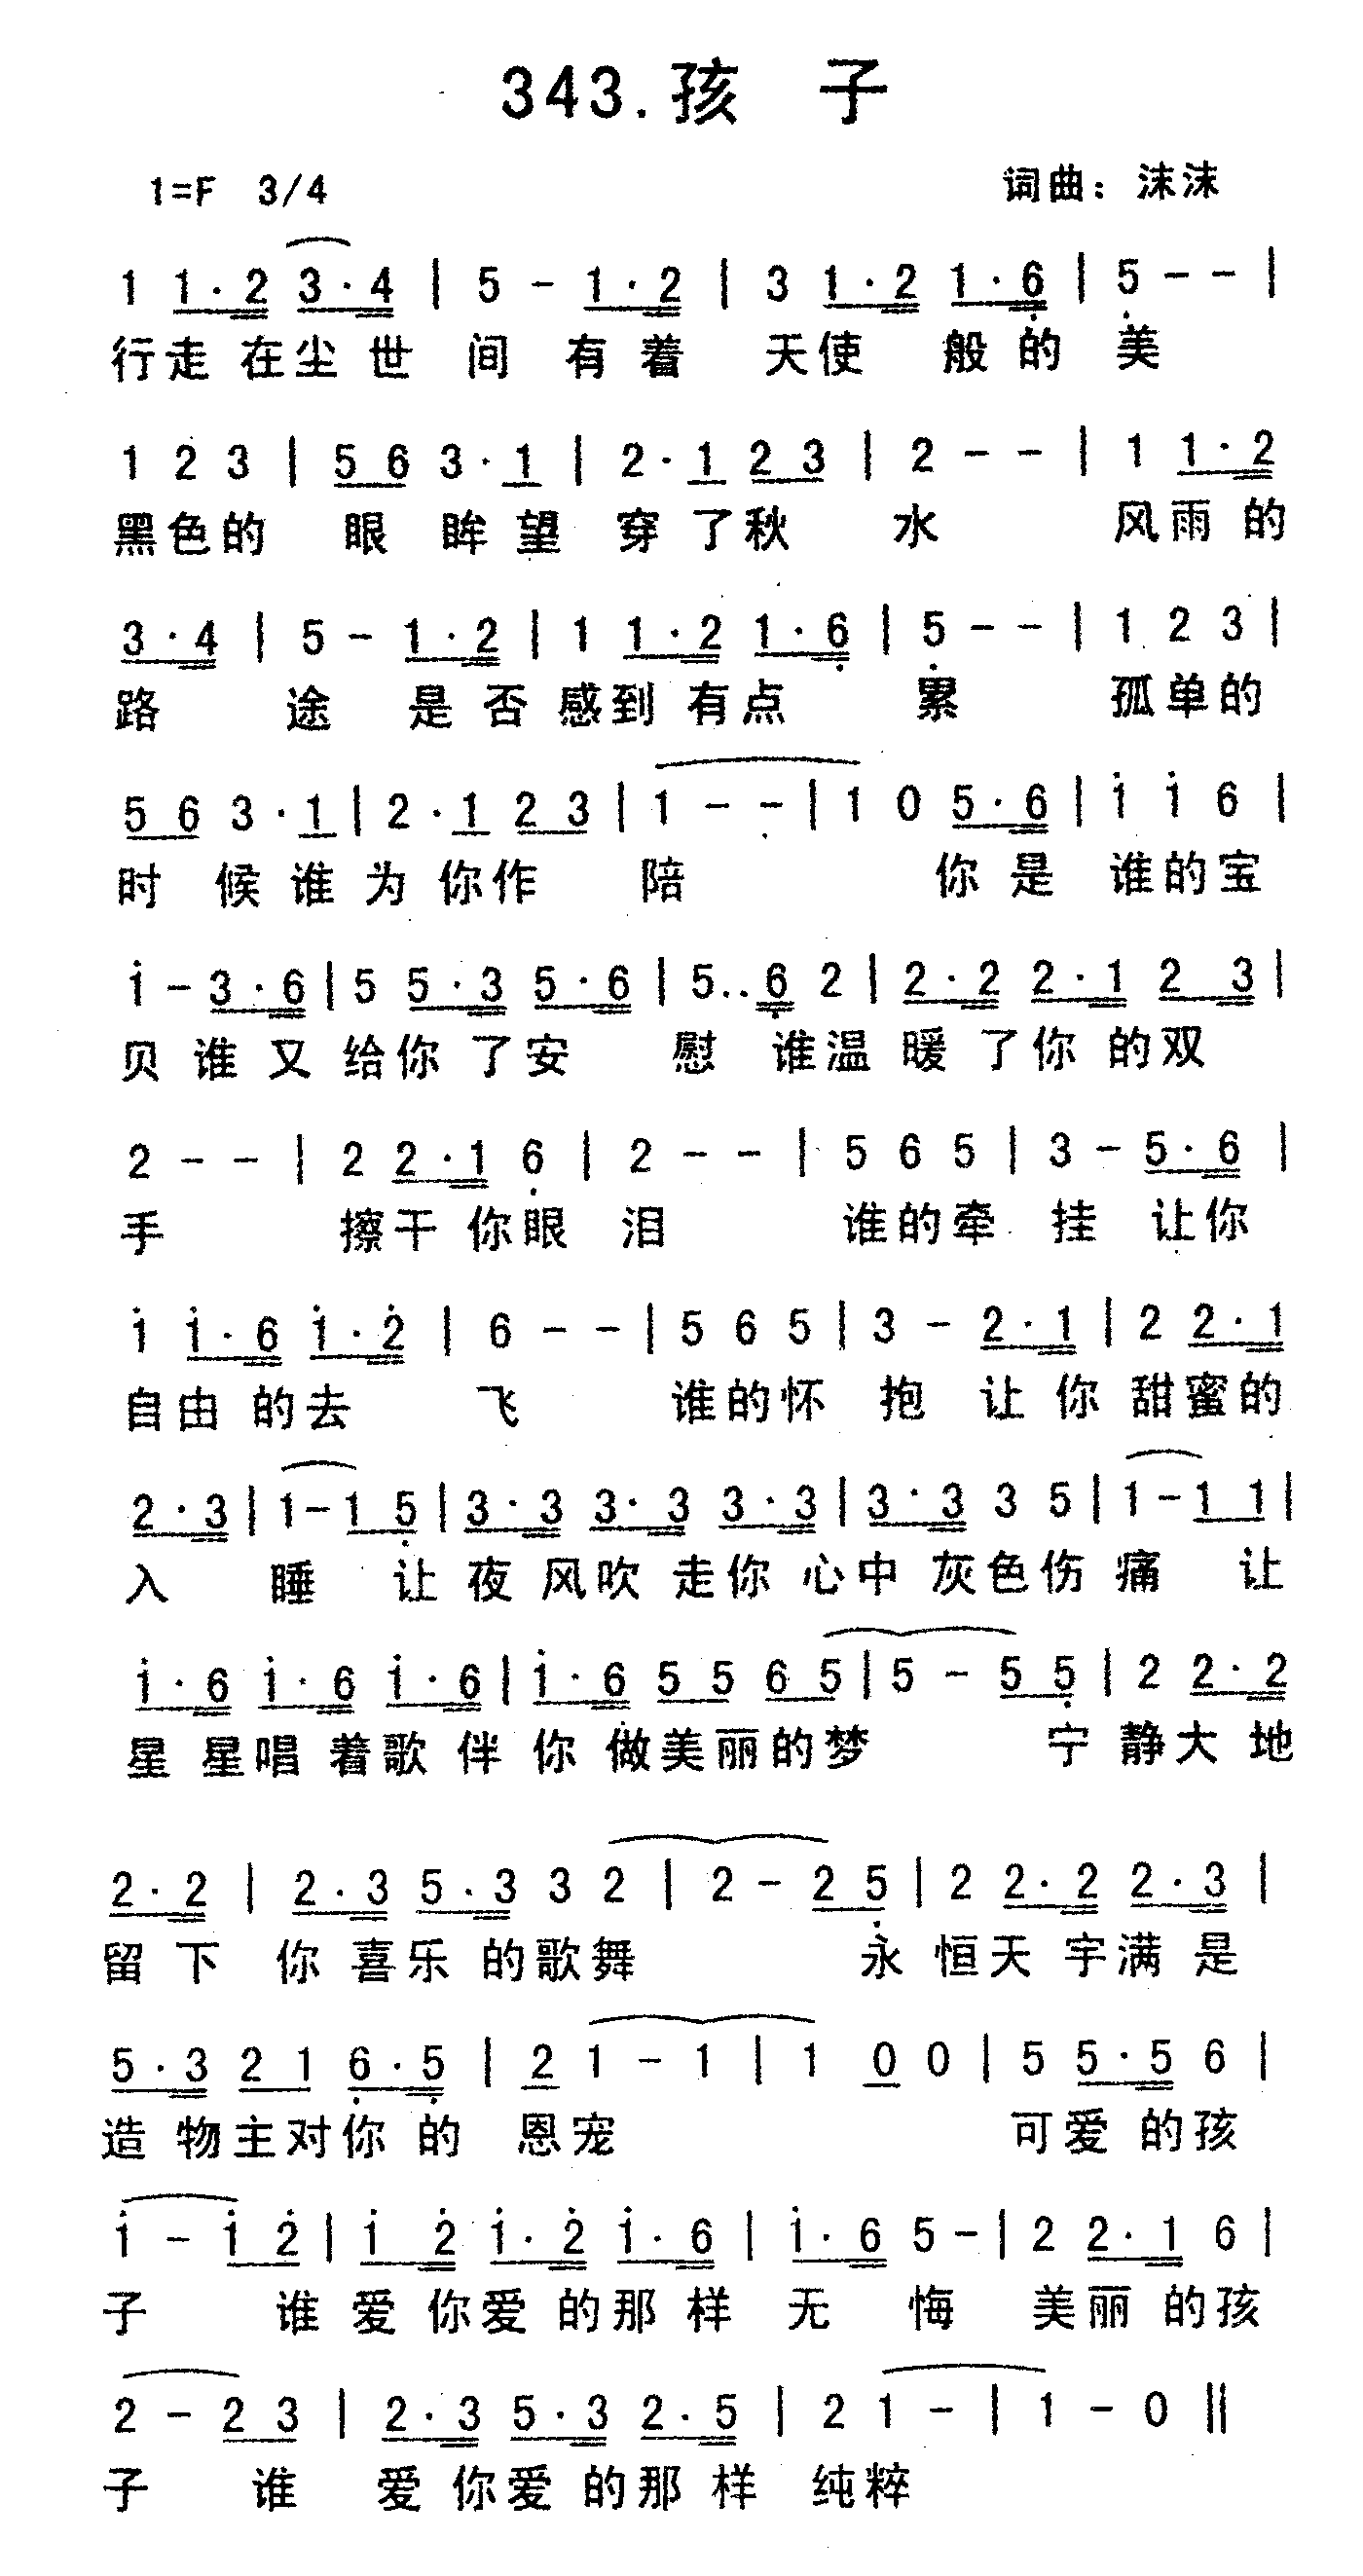 343.孩 子
1=F 3/4 词曲：沫沫
1 1·2 3·4 | 5 - 1·2 | 3 1·2 1·6 | 5 - - |
行走 在尘 世 间 有 着 天使 般 的 美
1 2 3 | 5 6 3·1 | 2·1 2 3 | 2 - - | 1 1·2
黑色的 眼 眸 望 穿 了秋 水 风雨 的
3·4 | 5 - 1·2 | 1 1·2 1·6 | 5 - - | 1 2 3 |
路 途 是 否 感到 有点 累 孤单的
5 6 3·1 | 2·1 2 3 | 1 - - | 1 0 5·6 | i i 6 |
时 候 谁 为 你作 陪 你 是 谁的宝
i - 3·6 | 5 5·3 5·6 | 5.. 6 2 | 2·2 2·1 2 3 |
贝 谁 又 给你 了安 慰 谁温 暖 了你 的双
2 - - | 2 2·1 6 | 2 - - | 5 6 5 | 3 - 5·6 |
手 擦干 你眼 泪 谁的牵 挂 让你
i i·6 i·2 | 6 - - | 5 6 5 | 3 - 2·1 | 2 2·1
自由 的去 飞 谁的怀 抱 让 你 甜蜜的
2·3 | 1 - 1 5 | 3·3 3·3 3·3 | 3·3 3 5 | 1 - 1 1 |
入 睡 让 夜 风吹 走你 心中 灰色伤 痛 让
i·6 i·6 i·6 | i·6 5 5 6 5 | 5 - 5 5 | 2 2·2
星 星唱 着歌 伴 你 做美丽的梦 宁 静大 地
2·2 | 2·3 5·3 3 2 | 2 - 2 5 | 2 2·2 2·3 |
留 下 你 喜乐 的歌舞 永 恒天 宇满 是
5·3 2 1 6·5 | 2 1 - 1 | 1 0 0 | 5 5·5 6 |
造 物主对你 的 恩宠 可爱 的孩
i - i 2 | i 2 i·2 i·6 | i·6 5 - | 2 2·1 6 |
子 谁 爱 你爱 的那 样 无 悔 美丽 的孩
2 - 2 3 | 2·3 5·3 2·5 | 2 1 - | 1 - 0 ‖
子 谁 爱 你爱 的那 样 纯粹